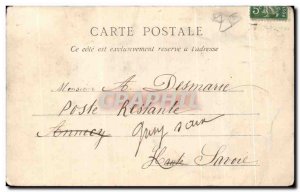 CARTE POSTALE
Ce côté est exclusivement réservé à l'adresse
Monsieur A. Desmarie
Poste Restante
Annecy
Haute Savoie